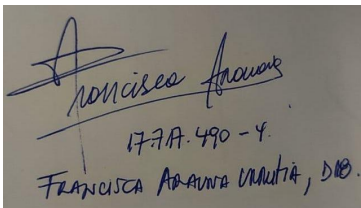 Francisca Aravena
17.717.490-4.
FRANCISCA ARAVENA URRUTIA, DID.